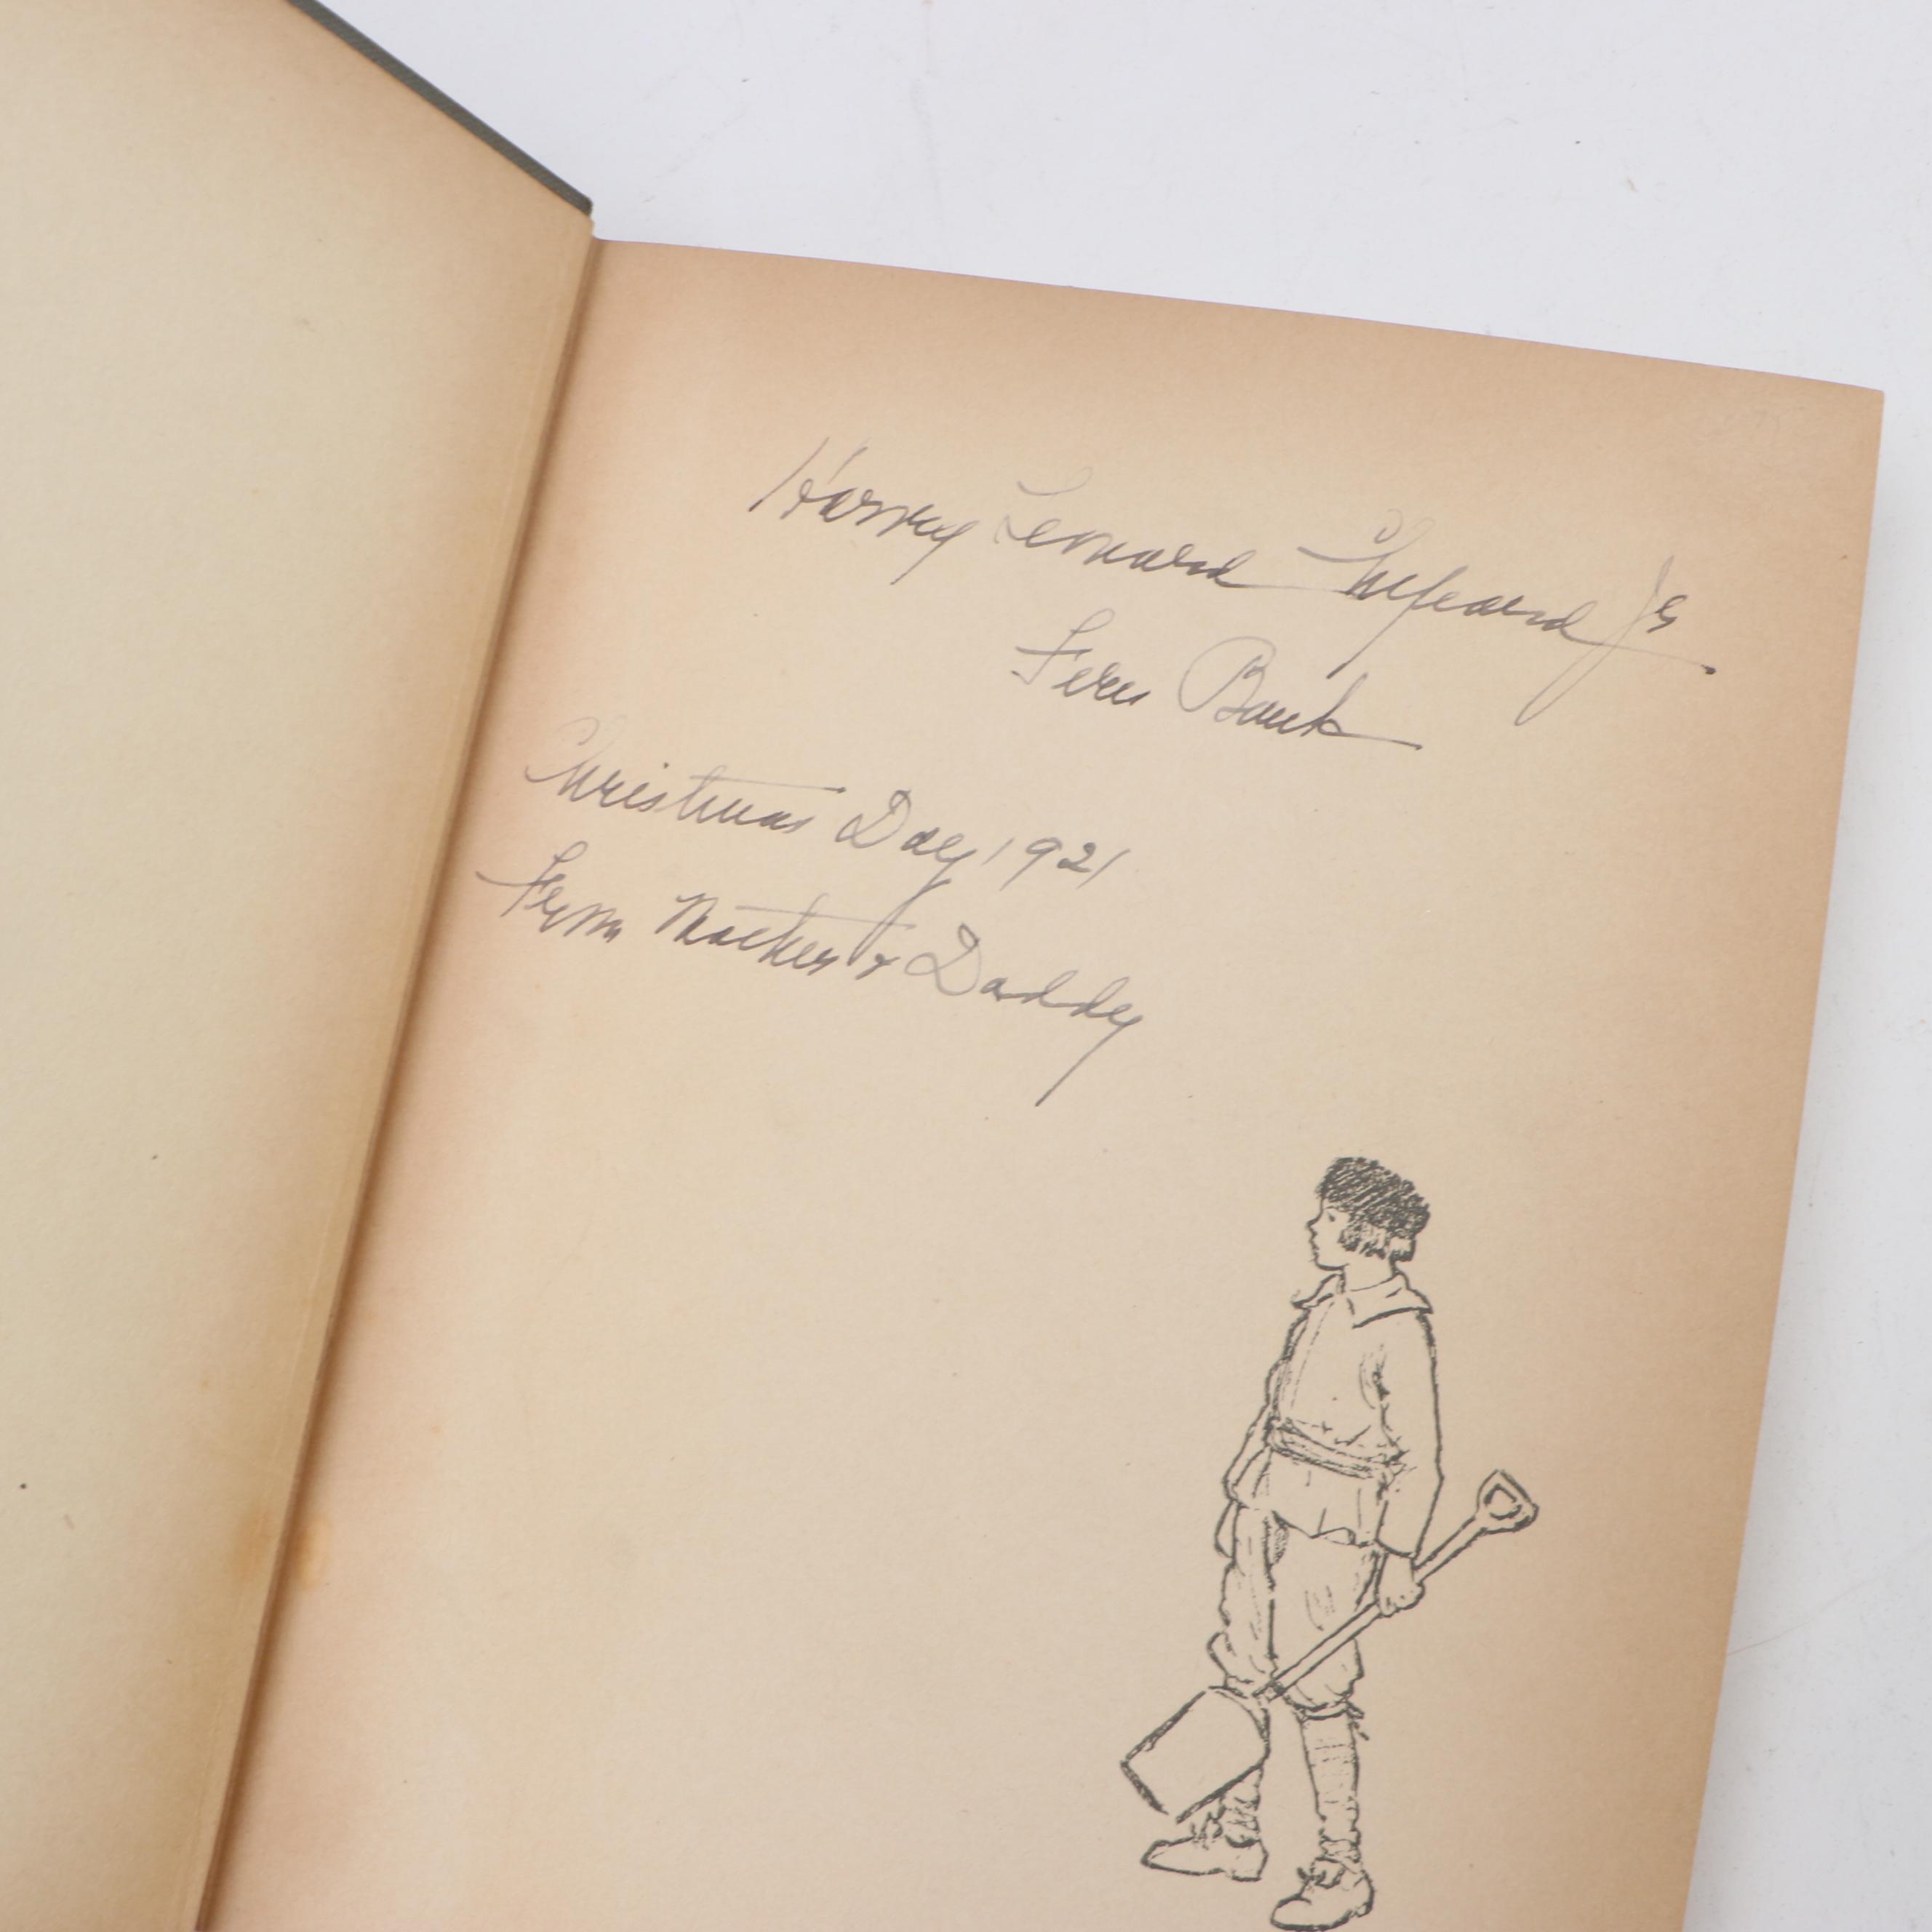 Harry Leonard Jr
Fern Bank
Christmas Day 1921
From Mother & Daddy